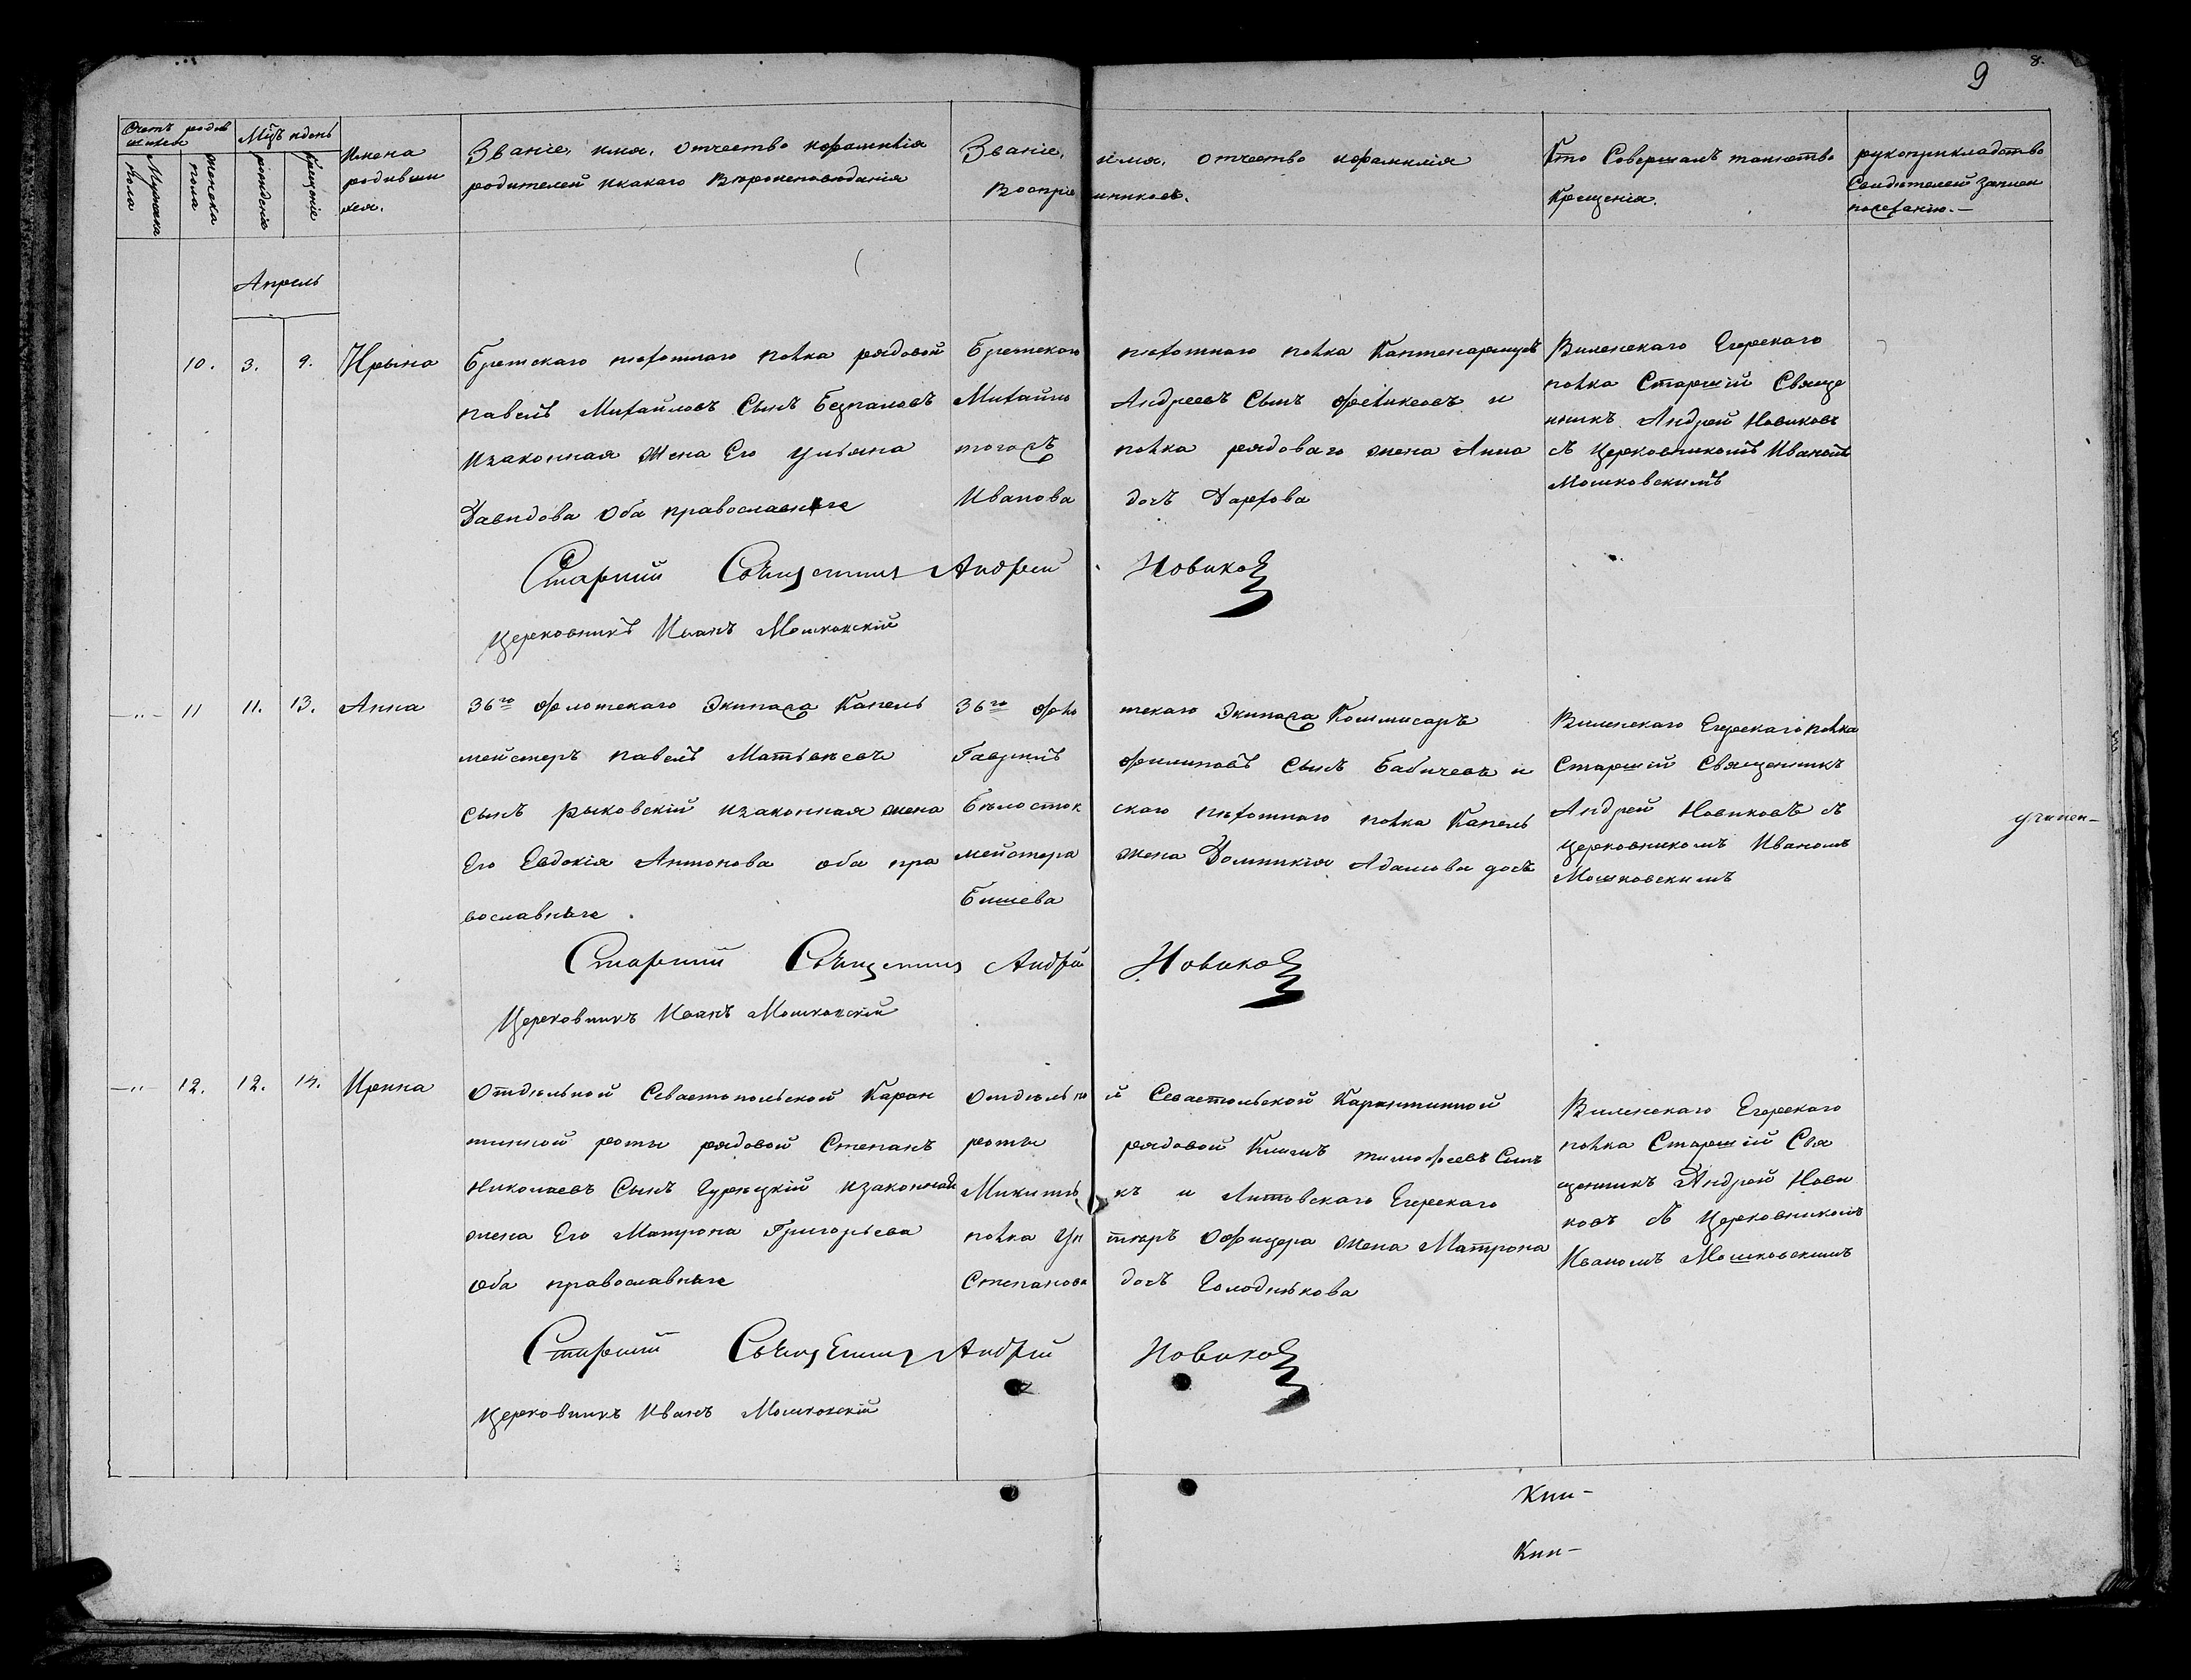 9
8.
Счетъ родив
шихся
Мцъ и день
Мужеска
пола
женска
пола
рожденіе
крещеніе
Имена
родивши
хся.
Званіе, имя, отчество и фамилія
родителей и какаго Вѣроисповѣданія
Званіе, имя, отчество и фамилія
Воспріемниковъ.
Кто Совершалъ таинство
Крещенія.
рукоприкладство
Свидѣтелей записи
по желанію.—
Апрель
10. 3. 9. Ирына
Брестскаго пехотнаго полка рядовой
павелъ Михайловъ Сынъ Безпаловъ
И законная жена Его Ульяна
Давидова Оба православные
Брестскаго пехотнаго полка Каптенармусъ
Михайло Андреевъ Сынъ Феликсовъ и
тогожъ полка рядоваго жена Анна
Иванова дочь
Виленскаго Егерскаго
полка Старшій Свяще
нникъ Андрей Новиковъ
съ Церковникомъ Иваномъ
Мошковскимъ
Старший Священникъ Андрей Новиковъ
Церковникъ Иванъ Мошковскій
—"— 11 11. 13. Анна
36го Флотскаго Экипажа Капель
мейстеръ павелъ Матвѣевъ
сынъ рыковскій и законная жена
Его Евдокія Антонова оба пра
вославные.
36го Флотскаго Экипажа Коммисаръ
Гаврилъ Филиповъ Сынъ Бабичевъ и
Бѣлостокскаго пѣхотнаго полка Капель
мейстера жена Домникия Адамова дочь
Бишева
Виленскаго Егерскаго полка
Старшій Священникъ
Андрей Новиковъ съ
церковникомъ Иваномъ
Мошковскимъ
Старший Священникъ Андрей Новиковъ
Церковникъ Иванъ Мошковскій
—"— 12. 12. 14. Ирина
Отдѣльной Севастопольской Каран
тинной роты рядовой Степанъ
Николаевъ Сынъ Гурецкій и законная
жена Его Матрона Григорьева
Оба православные
Отдѣльной Севастольской Карантинной
роты рядовой Климъ тимофеевъ Сынъ
и Литовскаго Егерскаго
полка Унтеръ Офицера жена Матрона
Степанова дочь Голоднякова
Виленскаго Егерскаго
полка Старшій Свя
щенникъ Андрей Нови
ковъ съ Церковникомъ
Иваномъ Мошковскимъ
Старший Священникъ Андрей Новиковъ
Церковникъ Иванъ Мошковскій